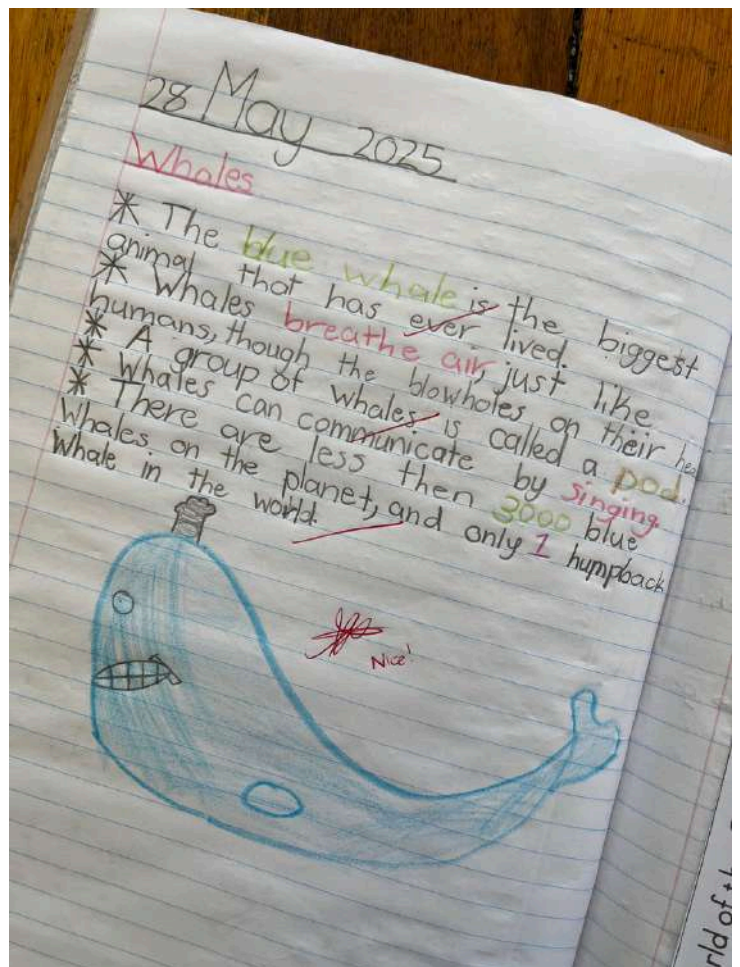 28 May 2025
Whales
* The blue whale is the biggest
animal that has ever lived.
* Whales breathe air, just like
humans, though the blowholes on their hea
* A group of whales is called a pod.
* Whales can communicate by singing.
* There are less then 3000 blue
whales on the planet, and only 1 humpback
whale in the world.
Nice!
rld of th